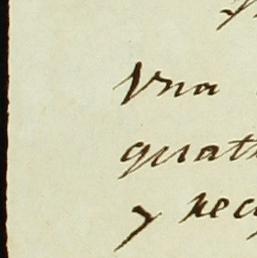 Una
quat
y rec